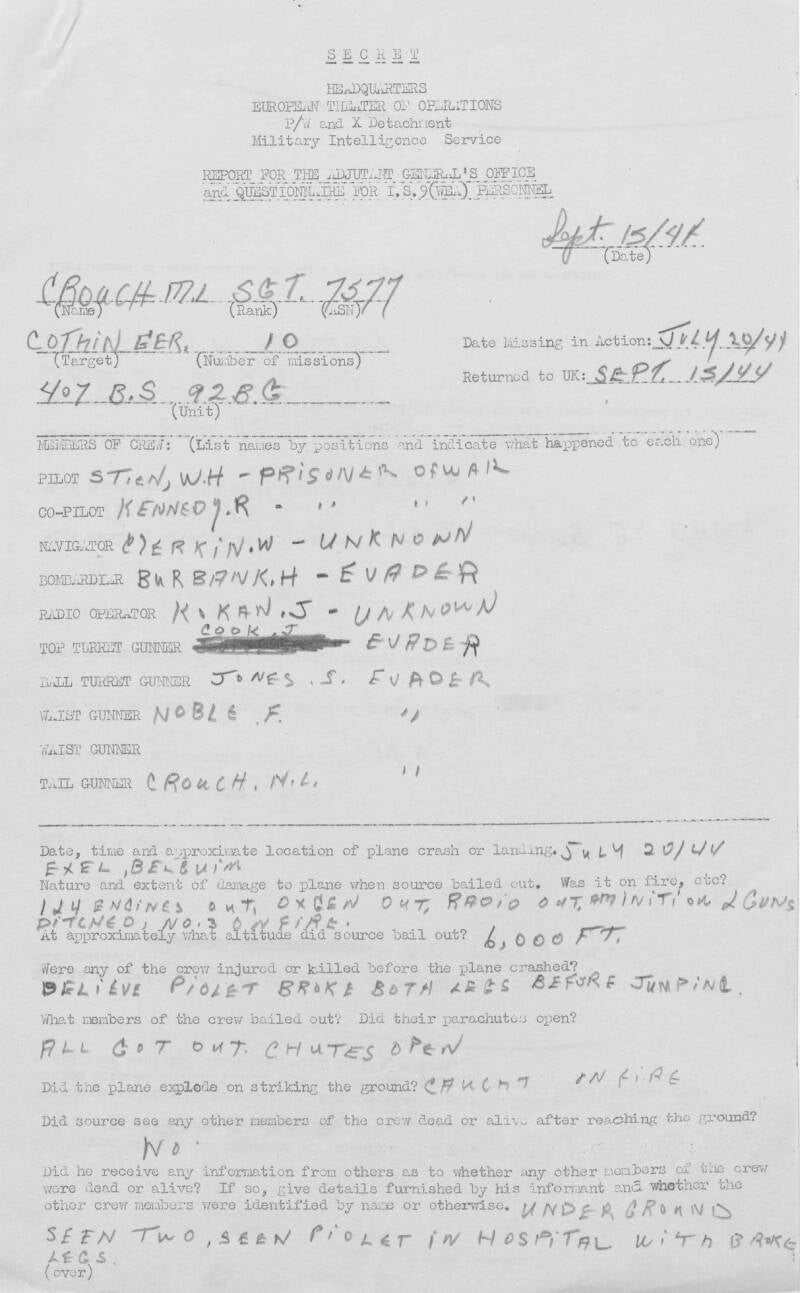 SECRET
HEADQUARTERS
EUROPEAN THEATER OF OPERATIONS
P/W and X Detachment
Military Intelligence Service
REPORT FOR THE ADJUTANT GENERAL'S OFFICE
and QUESTIONNAIRE FOR I.S.9(WEA) PERSONNEL
Sept. 15/44
(Date)
CROUCH M.L SGT. 7577
(Name) (Rank) (ASN)
COTHINGER. 10
(Target) (Number of missions)
Date Missing in Action: JULY 20/44
Returned to UK: SEPT. 15/44
407 B.S 92 B.G
(Unit)
MEMBERS OF CREW: (List names by positions and indicate what happened to each one)
PILOT STIEN, W.H - PRISONER OF WAR
CO-PILOT KENNEDY.R - " " "
NAVIGATOR W - UNKNOWN
BOMBARDIER BURBANK.H - EVADER
RADIO OPERATOR J - UNKNOWN
COOK.J
TOP TURRET GUNNER EVADER
BALL TURRET GUNNER JONES .S. EVADER
WAIST GUNNER NOBLE .F. "
WAIST GUNNER
TAIL GUNNER CROUCH. M.L. "
Date, time and approximate location of plane crash or landing. JULY 20/44
EXEL, BELGUIM
Nature and extent of damage to plane when source bailed out. Was it on fire, etc?
1&4 ENGINES OUT, OXGEN OUT, RADIO OUT, AMINITION & GUNS
DITCHED, NO. 3 ON FIRE.
At approximately what altitude did source bail out? 6,000 FT.
Were any of the crew injured or killed before the plane crashed?
BELIEVE PIOLET BROKE BOTH LEGS BEFORE JUMPING.
What members of the crew bailed out? Did their parachutes open?
ALL GOT OUT. CHUTES OPEN
Did the plane explode on striking the ground? CAUGHT IN FIRE
Did source see any other members of the crew dead or alive after reaching the ground?
NO.
Did he receive any information from others as to whether any other members of the crew
were dead or alive? If so, give details furnished by his informant and whether the
other crew members were identified by name or otherwise. UNDERGROUND
SEEN TWO, SEEN PIOLET IN HOSPITAL WITH BROKE
LEGS.
(over)